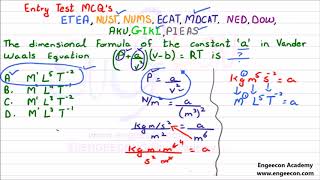 Entry Test MCQ's
ETEA, NUST, NUMS, ECAT, MDCAT, NED, DOW,
AKU, GIKI, PIEAS
The dimensional Formula of the constant 'a' in Vander
Waals Equation (P + a/v²)(v-b) = RT is ?
A. M¹ L⁵ T⁻²
B. M¹ L⁵ T⁻³
P = a/v²
N/m² = a/(m³)²
kg m/s²/m² = a/m⁶
kg m · m⁶⁻⁴/s² m² = a
kg m⁵ s⁻² = a
M¹ L⁵ T⁻² = a
Engeecon Academy
www.engeecon.com